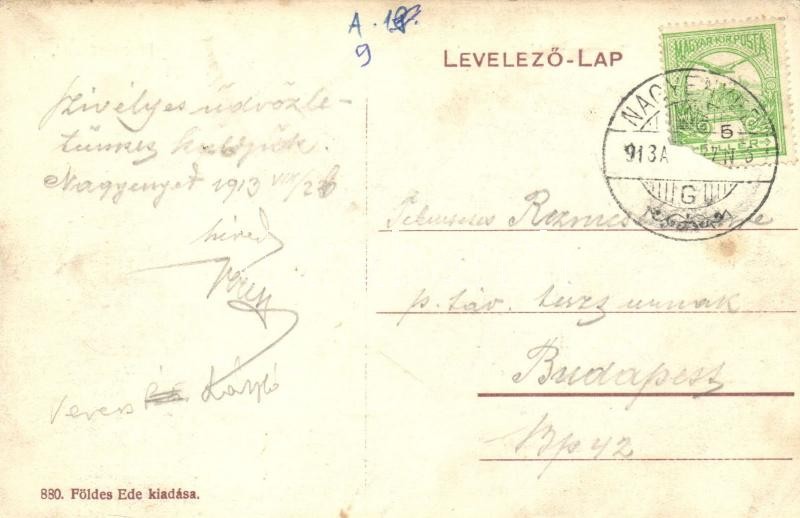 A. 18
9
LEVELEZŐ-LAP
MAGYAR KIR. POSTA
5
NAGYENYED
913 A
G
Szivélyes üdvözle-
tünket küldjük.
Nagyenyed 1913 VIII/26
hived
Veress László
p. táv. tiszt urnak
Budapest
Bp 42
880. Földes Ede kiadása.